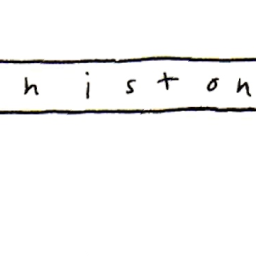 h i s t o n